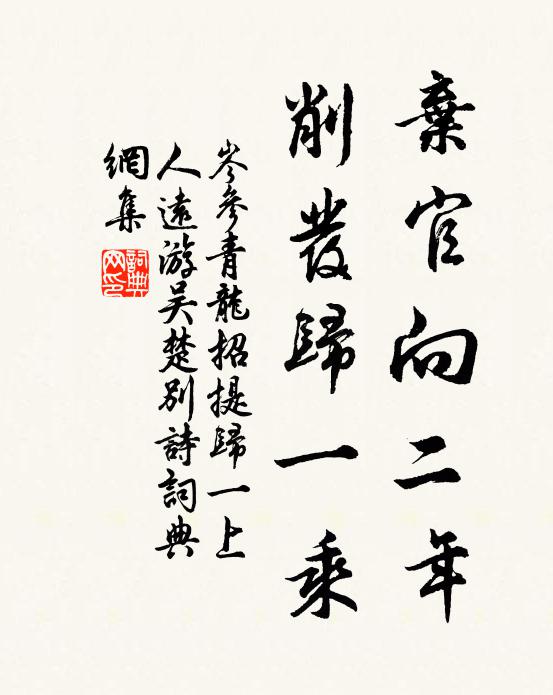 棄官向二年
削發歸一乘
岑參青龍招提歸一上
人遠游吴楚別詩詞典
網集
詞典
网印